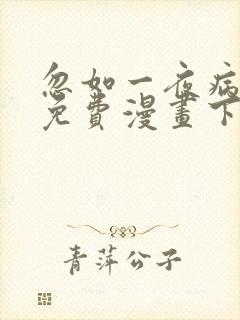 忽如一夜病
免費漫畫下
青萍公子